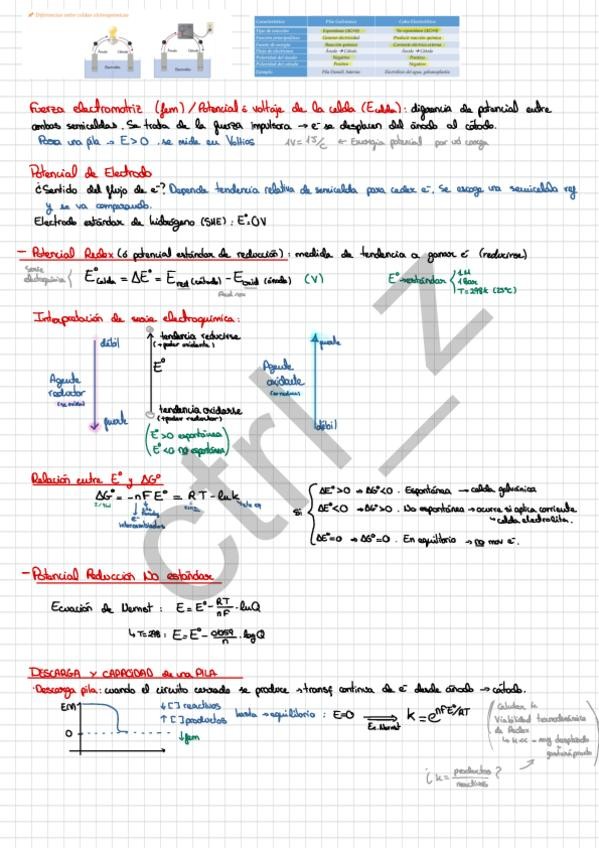 Diferencias entre celdas electroquímicas
Ánodo Cátodo Ánodo Cátodo
Electrolito Electrolito
Característica Pila Galvánica Cuba Electrolítica
Tipo de reacción Espontánea (ΔG<0) No espontánea (ΔG>0)
Función principal Generar electricidad Producir reacción química
Fuente de energía Reacción química Corriente eléctrica externa
Flujo de electrones Ánodo → Cátodo Ánodo → Cátodo
Polaridad del ánodo Negativo Positivo
Polaridad del cátodo Positivo Negativo
Ejemplo Pila Daniell, baterías Electrólisis del agua, galvanoplastia
Fuerza electromotriz (fem) / Potencial ó voltaje de la celda (Ecelda): diferencia de potencial entre
ambas semiceldas. Se trata de la fuerza impulsora → e⁻ se desplacen del ánodo al cátodo.
Para una pila → E>0. se mide en Voltios 1V = 1J/C ← Energía potencial por ud carga
Potencial de Electrodo
¿Sentido del flujo de e⁻? Depende tendencia relativa de semicelda para ceder e⁻. Se escoge una semicelda ref
y se va comparando.
Electrodo estándar de hidrógeno (SHE): E°=0V
- Potencial Redox (ó potencial estándar de reducción): medida de tendencia a ganar e⁻ (reducirse)
Serie electroquímica { E°celda = ΔE° = Ered (cátodo) - Eoxid (ánodo) (V) E° → estándar { 1M
1 Bar
T=298k (25°C)
Interpretación de serie electroquímica:
débil tendencia reducirse fuerte
(+ poder oxidante)
E°
Agente reductor (se oxida) Agente oxidante (se reduce)
fuerte tendencia oxidarse débil
(+ poder reductor)
(E°>0 espontánea
E°<0 no espontánea)
Relación entre E° y ΔG°
ΔG° = -nFE° = RT - lnk
e⁻ intercambiados
Si { ΔE°>0 → ΔG°<0. Espontánea → celda galvánica
ΔE°<0 → ΔG°>0. No espontánea → ocurre si aplica corriente
↳ celda electrolít.
ΔE°=0 → ΔG°=0. En equilibrio → no mov e⁻.
- Potencial Reducción No estándar
Ecuación de Nernst: E = E° - RT/nF · lnQ
↳ T=298: E = E° - 0'059/n · logQ
DESCARGA Y CAPACIDAD de una PILA
· Descarga pila: cuando el circuito cerrado se produce → transf continua de e⁻ desde ánodo → cátodo.
EM ↓[ ] reactivos
↑[ ] productos hasta → equilibrio: E=0 ⟹ k = e^nFE°/RT
Ec. Nernst
0 ↓fem
(Calcular k
Viabilidad termodinámica
de Redox
↳ k<< → muy desplazado
¿k = productos/reactivos?
ctrl_z